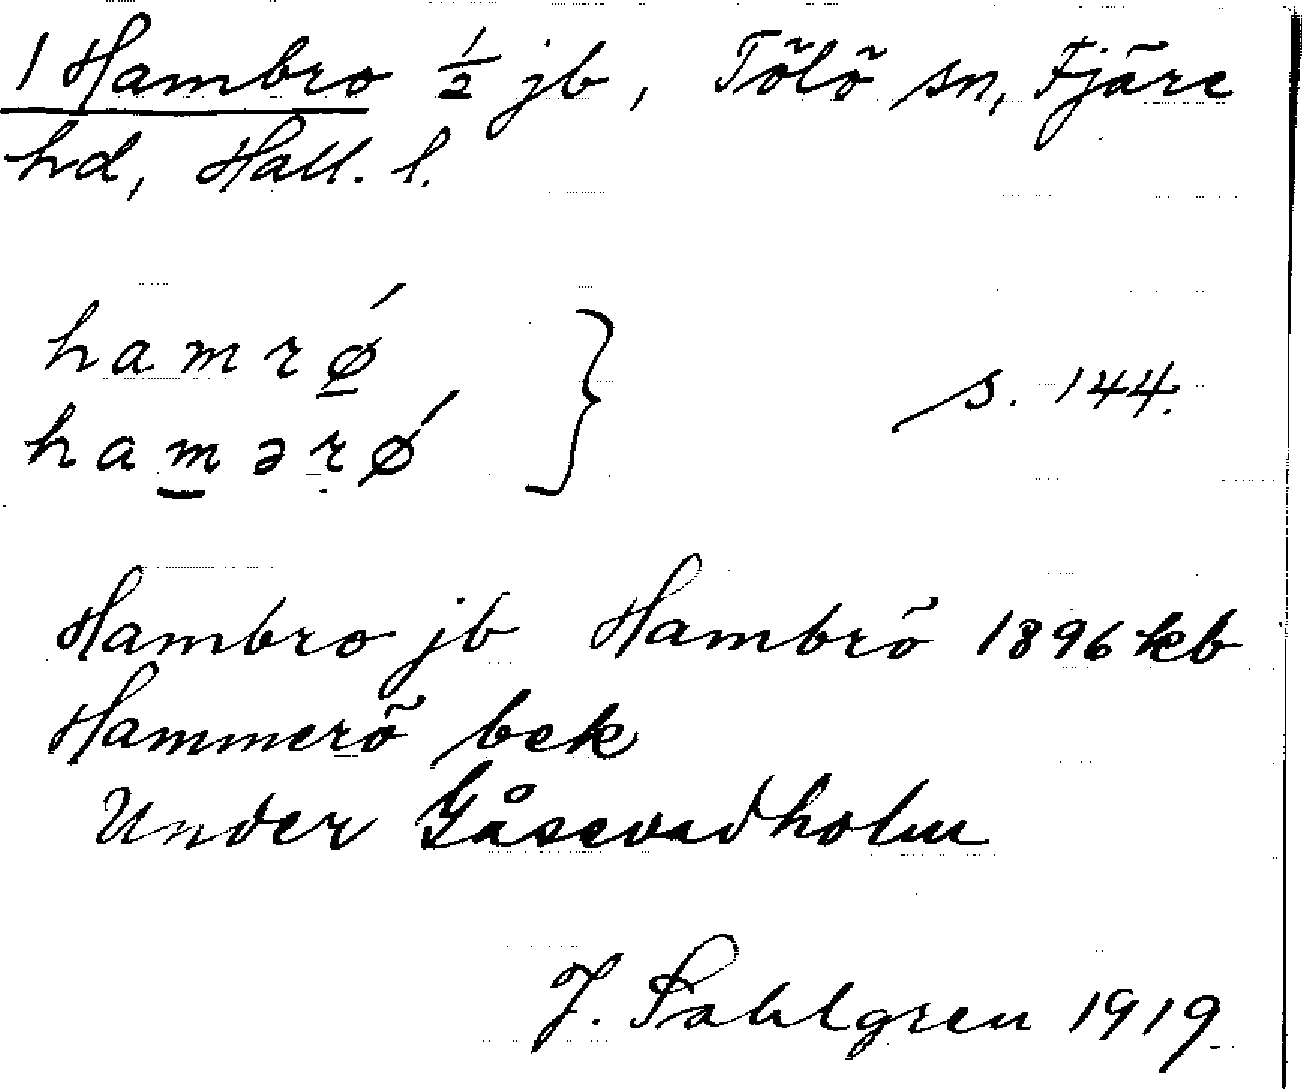 1 Hambro ½ jb, Tölö sn, Fjäre
hd, Hall. l.
hamrǿ
hamərǿ
s. 144.
Hambro jb Hambrö 1896 kb
Hammerö bek
Under Gåsevadholm
J. Sahlgren 1919